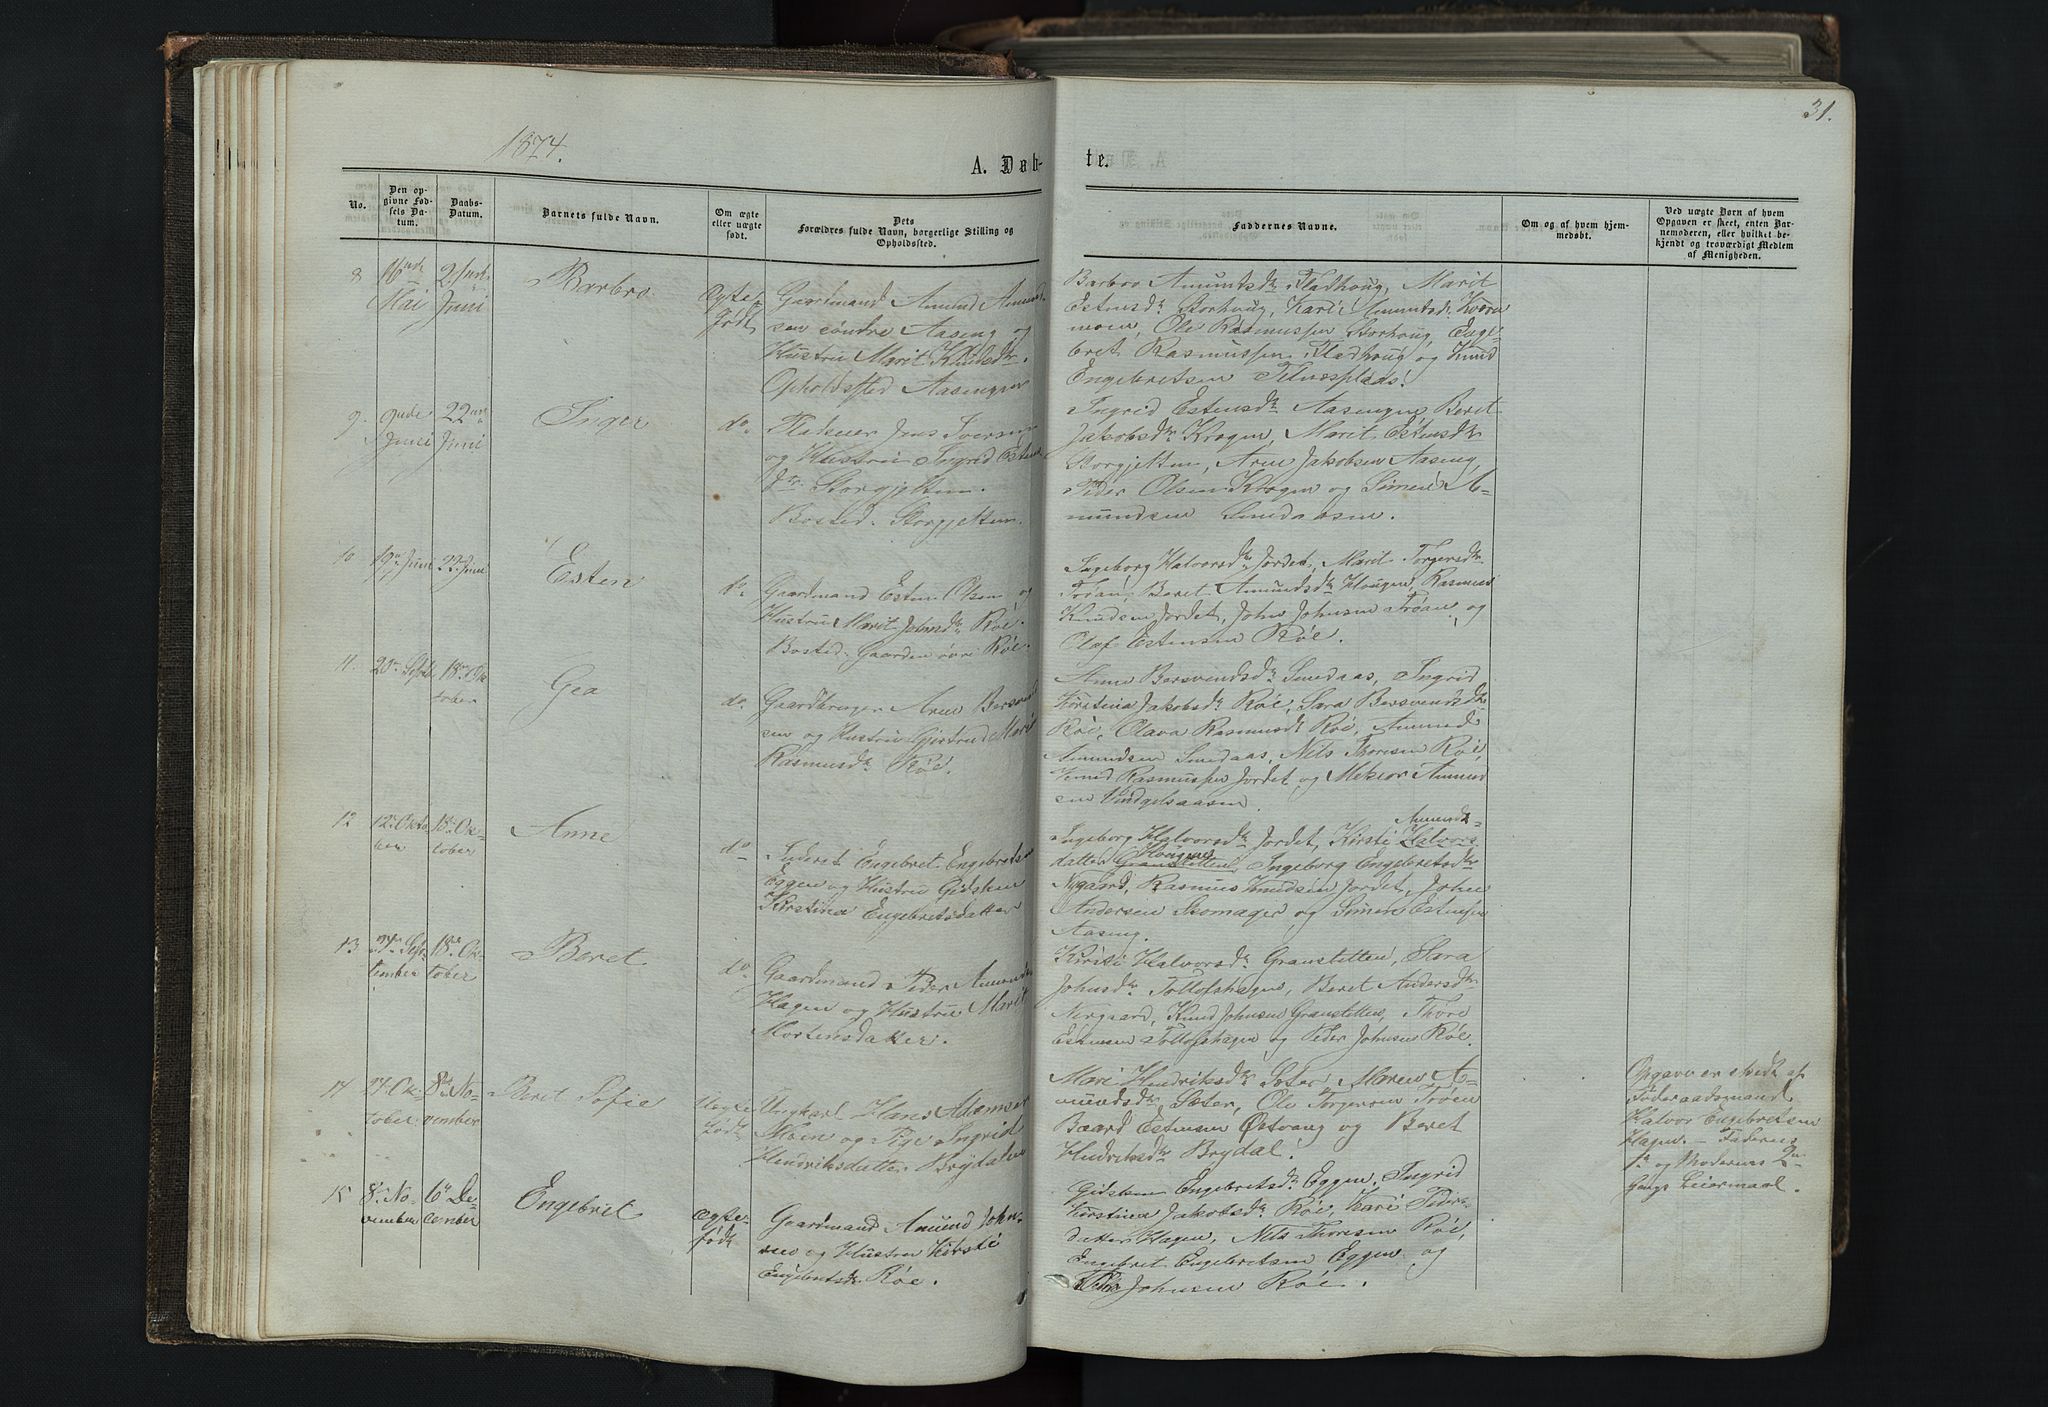 31.
1874.
A. Døb-
te.
No.
Den op-
givne Fød-
sels Da-
tum.
Daabs-
Datum.
Barnets fulde Navn.
Om ægte
eller uægte
født.
Dets
Forældres fulde Navn, borgerlige Stilling og
Opholdssted.
Faddernes Navne.
Om og af hvem hjem-
medøbt.
Ved uægte Børn af hvem
Opgaven er skeet, enten Bar-
nemoderen, eller hvilket be-
kjendt og troværdigt Medlem
af Menigheden.
8
16de
Mai
2den
Juni
Barbro
Ægte-
født
Gaardmand Amund Amund-
sen søndre Aaseng og
Hustru Marit Knudsdtr.
Opholdssted Aasengen
Barbro Amundsdtr Fladhoug, Marit
Estensdtr Storhoug, Kari Amundsdtr Kværn
moen, Ole Rasmussen Storhoug, Enge-
bret Rasmussen Fladhoug og Knud
Engebretsen Telnesplads.
9.
9nde
Juni
22de
Juni
Inger
do.
Jens Iversen
og Hustru Ingrid Estens
dtr. Storgjetten.
Bosted: Storgjetten.
Ingrid Estensdtr Aasengen, Beret
Jakobsdtr Krogen, Marit Estensdtr
Storgjetten, Arne Jakobsen Aaseng,
Peder Olsen Krogen og Simen A-
mundsen Smedaasen.
10
19de Juni
22. Juni
Esten
do.
Gaardmand Esten Olsen og
Hustru Marit Johnsdtr. Røe.
Bosted: Gaarden øvre Røe.
Ingeborg Halvorsdtr Jordet, Marit Torgersdtr
Trøan, Beret Amundsdtr Hougen, Rasmus
Knudsen Jordet, John Johnsen Trøan, og
Olaf Estensen Røe.
11.
20de Septbr.
18de Ok-
tober
Gea
do.
Gaardbruger Arne Bersvend
sen og Hustru Gjertrud Marit
Rasmusdtr Røe.
Anne Bersvendsdtr Smedaas, Ingrid
Kirstina Jakobsdtr Røe, Sara Bersvendsdtr
Røe, Olava Rasmusdtr Røe, Amund
Amundsen Smedaas, Nils Thoresen Røe,
Knud Rasmussen Jordet og Mekior Amund
sen Vingelsaasen.
12
12te Okto
ber
18de Ok-
tober
Anne
do
Inderst Engebret Engebretsen
Eggen og Hustru Gidsken
Kirstina Engebretsdatter
Amunds-
Ingeborg Halvorsdtr Jordet, Kirsti Halvors
Hougen
datter Granstetten, Ingeborg Engebretsdtr
Nygaard, Rasmus Knudsen Jordet, John
Andersen Skomager og Simen Estensen
Aaseng.
13
Sep-
tember
18de Ok-
tober
Beret
do
Gaardmand Peder Amunds
Hagen og Hustru Marit
Mortensdatter.
Kirsti Halvorsdtr Granstetten, Sara
Johnsdtr Tollefshagen, Beret Andersdtr
Nergaard, Knud Johnsen Granstetten, Thore
Estensen Tollefshagen og Peder Johnsen Røe.
14
27. Ok-
tober
8de No-
vember
Beret Sofie
Uægte
født
Ungkarl Hans Adamsen
Moen og Pige Ingrid
Hendriksdatter Brydalen
Mari Hendriksdtr Sæter, Maren A-
mundsdtr Sæter, Ole Torgersen Trøen
Baard Estensen Østvang og Beret
Hendriksdtr Brydal.
Opgaven er skedt af
Føderaadsmand
Halvor Engebretsen
Hagen. — Faderens
1ste og Moderens 2den
Gangs Leiermaal.
15
8de No-
vember
6te De-
cember
Engebret
Ægte-
født
Gaardmand Amund John-
sen og Hustru Kirsti
Engebretsdtr Røe.
Gidsken Engebretsdtr Eggen, Ingrid
Kirstina Jakobsdtr Røe, Kari Peders-
datter Hagen, Nils Thoresen Røe,
Engebret Engebretsen Eggen og
Peder Johnsen Røe.